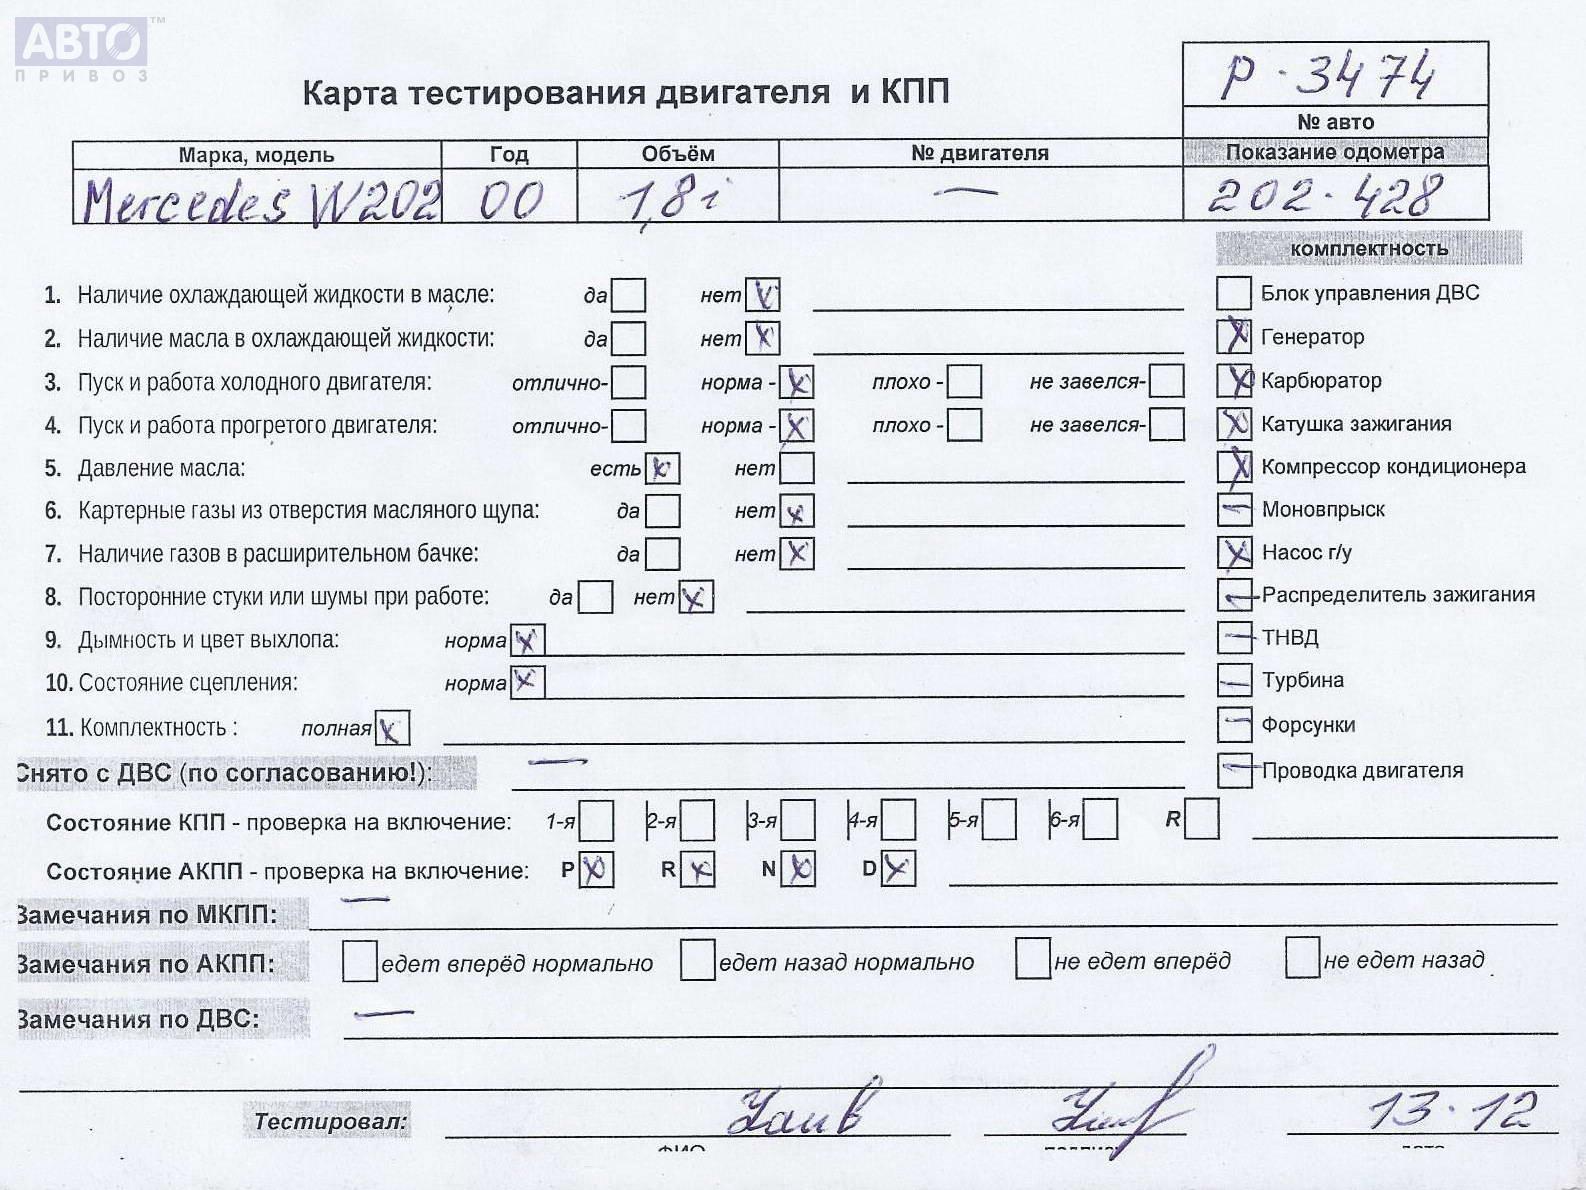 АВТО™
ПРИВОЗ
Р-3474
Карта тестирования двигателя и КПП
№ авто
Марка, модель Год Объём № двигателя Показание одометра
Mercedes W202 00 1,8i — 202-428
комплектность
1. Наличие охлаждающей жидкости в масле: да нет V Блок управления ДВС
2. Наличие масла в охлаждающей жидкости: да нет X X Генератор
3. Пуск и работа холодного двигателя: отлично- норма - X плохо - не завелся- X Карбюратор
4. Пуск и работа прогретого двигателя: отлично- норма - X плохо - не завелся- X Катушка зажигания
5. Давление масла: есть X нет X Компрессор кондиционера
6. Картерные газы из отверстия масляного щупа: да нет X — Моновпрыск
7. Наличие газов в расширительном бачке: да нет X X Насос г/у
8. Посторонние стуки или шумы при работе: да нет X — Распределитель зажигания
9. Дымность и цвет выхлопа: норма X — ТНВД
10. Состояние сцепления: норма X — Турбина
11. Комплектность : полная X — Форсунки
Снято с ДВС (по согласованию!): — — Проводка двигателя
Состояние КПП - проверка на включение: 1-я 2-я 3-я 4-я 5-я 6-я R
Состояние АКПП - проверка на включение: P X R X N X D X
Замечания по МКПП: —
Замечания по АКПП: едет вперёд нормально едет назад нормально не едет вперёд не едет назад
Замечания по ДВС: —
Тестировал: 13.12